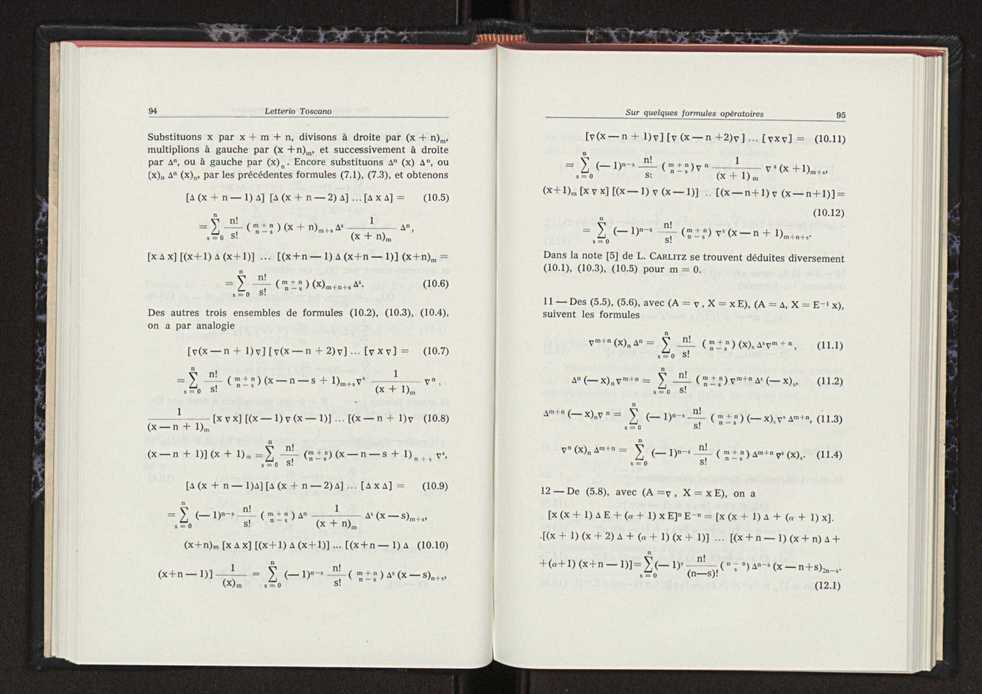 94 Letterio Toscano
Substituons x par x + m + n, divisons à droite par (x + n)ₘ,
multiplions à gauche par (x +n)ₘ, et successivement à droite
par Δⁿ, ou à gauche par (x)ₙ. Encore substituons Δⁿ (x) Δⁿ, ou
(x)ₙ Δⁿ (x)ₙ, par les précédentes formules (7.1), (7.3), et obtenons
[Δ (x + n — 1) Δ] [Δ (x + n — 2) Δ] ... [Δ x Δ] = (10.5)
= Σ_{s = 0}^{n} n!/s! (m + n / n — s) (x + n)ₘ₊ₛ Δˢ 1/(x + n)ₘ Δⁿ,
[x Δ x] [(x+1) Δ (x+1)] ... [(x+n — 1) Δ (x+n — 1)] (x+n)ₘ =
= Σ_{s = 0}^{n} n!/s! (m + n / n — s) (x)ₘ₊ₙ₊ₛ Δˢ. (10.6)
Des autres trois ensembles de formules (10.2), (10.3), (10.4),
on a par analogie
[∇(x — n + 1) ∇] [ ∇(x — n + 2) ∇] ... [ ∇ x ∇ ] = (10.7)
= Σ_{s = 0}^{n} n!/s! (m + n / n — s) (x — n — s + 1)ₘ₊ₛ ∇ˢ 1/(x + 1)ₘ ∇ⁿ.
1/(x — n + 1)ₘ [x ∇ x] [(x — 1) ∇ (x — 1)] ... [(x — n + 1) ∇ (10.8)
(x — n + 1)] (x + 1)ₘ = Σ_{s = 0}^{n} n!/s! (m + n / n — s) (x — n — s + 1)ₙ₊ₛ ∇ˢ.
[Δ (x + n — 1)Δ] [Δ (x + n — 2) Δ] ... [Δ x Δ] = (10.9)
= Σ_{s = 0}^{n} (— 1)ⁿ⁻ˢ n!/s! (m + n / n — s) Δⁿ 1/(x + n)ₘ Δˢ (x — s)ₘ₊ₛ,
(x+n)ₘ [x Δ x] [(x+1) Δ (x+1)] ... [(x+n — 1) Δ (10.10)
(x+n — 1)] 1/(x)ₘ = Σ_{s = 0}^{n} (— 1)ⁿ⁻ˢ n!/s! (m + n / n — s) Δˢ (x — s)ₙ₊ₛ,
Sur quelques formules opératoires 95
[∇(x — n + 1) ∇] [∇ (x — n +2)∇ ] ... [ ∇x∇] = (10.11)
= Σ_{s = 0}^{n} (— 1)ⁿ⁻ˢ n!/s! (m + n / n — s) ∇ⁿ 1/(x + 1)ₘ ∇ˢ (x +1)ₘ₊ₛ,
(x+1)ₘ [x ∇ x] [(x — 1) ∇ (x — 1)] ... [(x — n+1) ∇ (x — n+1)] =
(10.12)
= Σ_{s = 0}^{n} (— 1)ⁿ⁻ˢ n!/s! (m + n / n — s) ∇ˢ (x — n + 1)ₘ₊ₙ₊ₛ.
Dans la note [5] de L. CARLITZ se trouvent déduites diversement
(10.1), (10.3), (10.5) pour m = 0.
11 — Des (5.5), (5.6), avec (A = ∇ , X = x E), (A = Δ, X = E⁻¹ x),
suivent les formules
∇ᵐ⁺ⁿ (x)ₙ Δⁿ = Σ_{s = 0}^{n} n!/s! (m + n / n — s) (x)ₛ Δˢ ∇ᵐ⁺ⁿ, (11.1)
Δⁿ (— x)ₙ ∇ᵐ⁺ⁿ = Σ_{s = 0}^{n} n!/s! (m + n / n — s) ∇ᵐ⁺ⁿ Δˢ (— x)ₛ, (11.2)
Δᵐ⁺ⁿ (— x)ₙ ∇ⁿ = Σ_{s = 0}^{n} (— 1)ⁿ⁻ˢ n!/s! (m + n / n — s) (— x)ₛ ∇ˢ Δᵐ⁺ⁿ, (11.3)
∇ⁿ (x)ₙ Δᵐ⁺ⁿ = Σ_{s = 0}^{n} (— 1)ⁿ⁻ˢ n!/s! (m + n / n — s) Δᵐ⁺ⁿ ∇ˢ (x)ₛ. (11.4)
12 — De (5.8), avec (A = ∇ , X = x E), on a
[x (x + 1) Δ E + (α + 1) x E]ⁿ E⁻ⁿ = [x (x + 1) Δ + (α + 1) x].
.[(x + 1) (x + 2) Δ + (α + 1) (x + 1)] ... [(x + n — 1) (x + n) Δ +
+ (α+1) (x+n — 1)] = Σ_{s = 0}^{n} (— 1)ˢ n!/(n—s)! (α — n / s) Δⁿ⁻ˢ (x — n+s)₂ₙ₋ₛ.
(12.1)